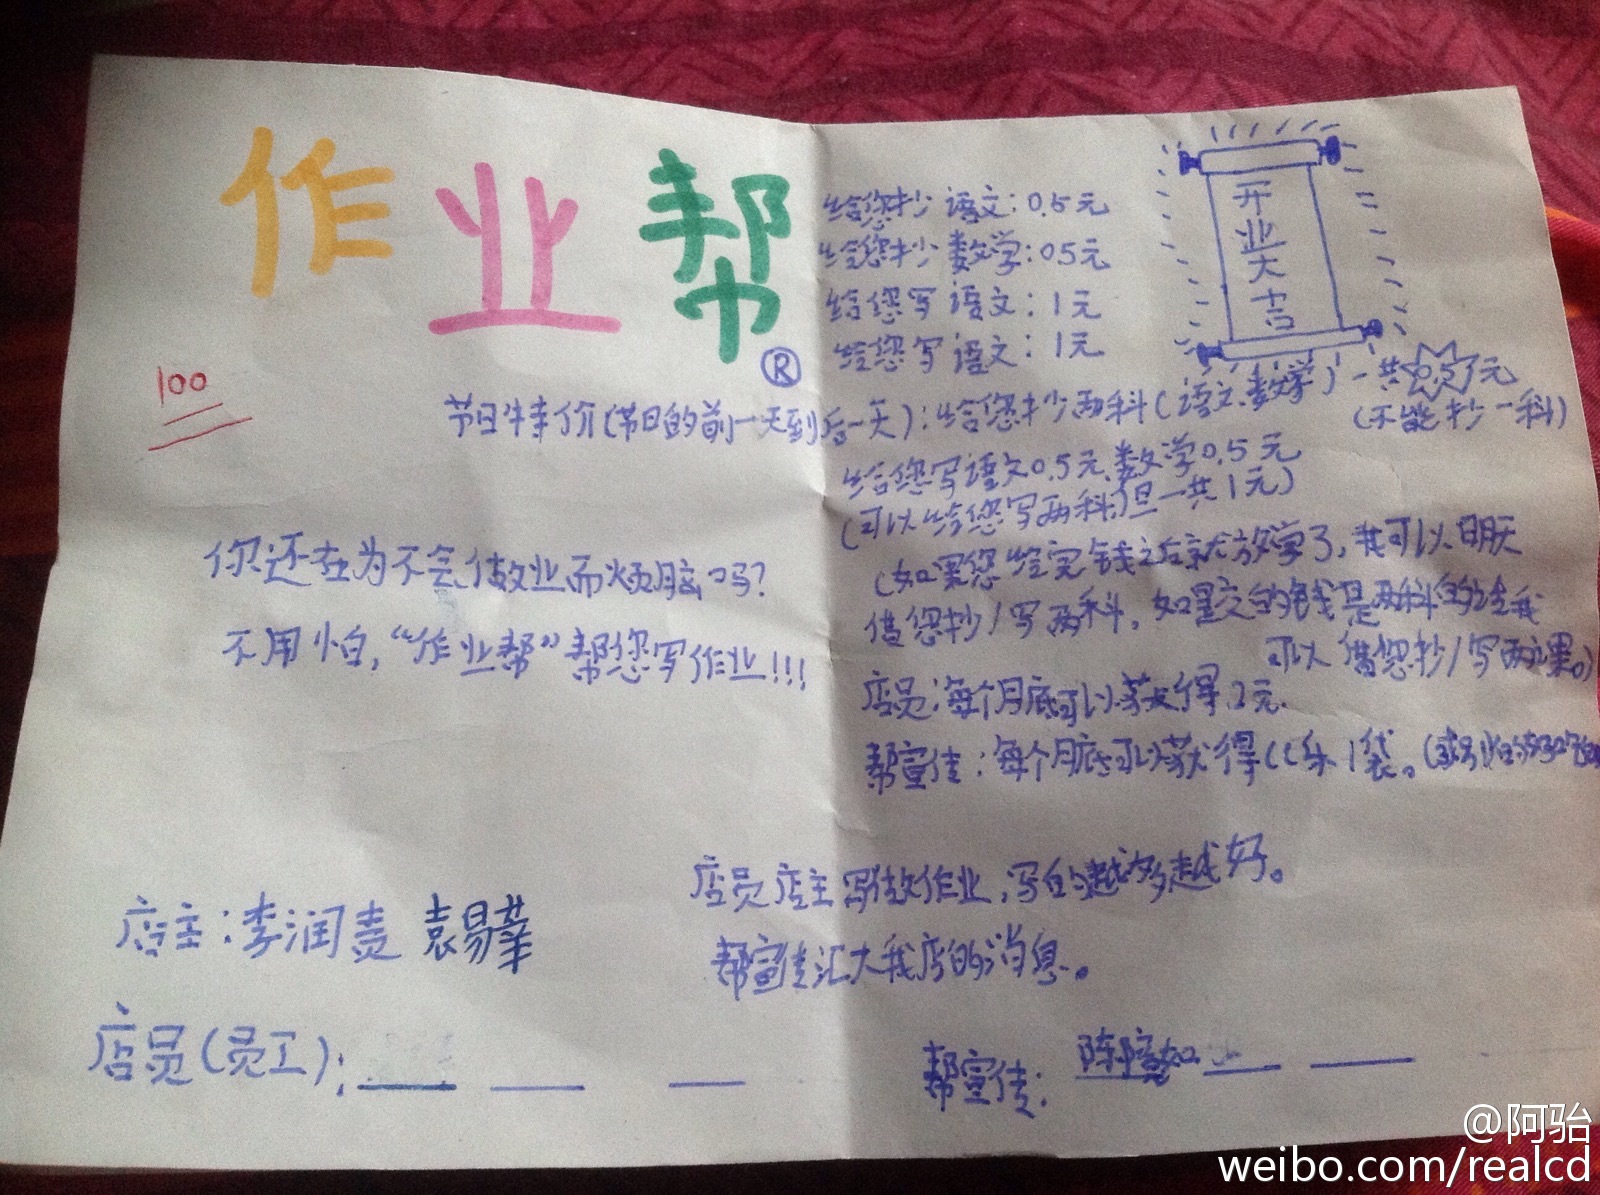 作业帮
®
100
给您抄语文：0.5元
给您抄数学：0.5元
给您写语文：1元
给您写语文：1元
开业大吉
节日特价(节日的前一天到后一天)：给您抄两科(语文、数学)一共0.5元
(不能抄一科)
给您写语文0.5元、数学0.5元
(可以给您写两科，但一共1元)
(如果您给完钱之后就放学了，我可以明天
借您抄/写两科，如果交的钱是两科的给我
可以借您抄/写两课。)
店员：每个月底可以获得2元。
帮宣传：每个月底可以获得CC乐1袋。
你还在为不会做业而烦脑吗？
不用怕，“作业帮”帮您写作业!!!
店员店主写做作业，写的越多越好。
帮宣传汇大我店的消息。
店主：李润
店员(员工)：
帮宣传：
@阿骀
weibo.com/realcd